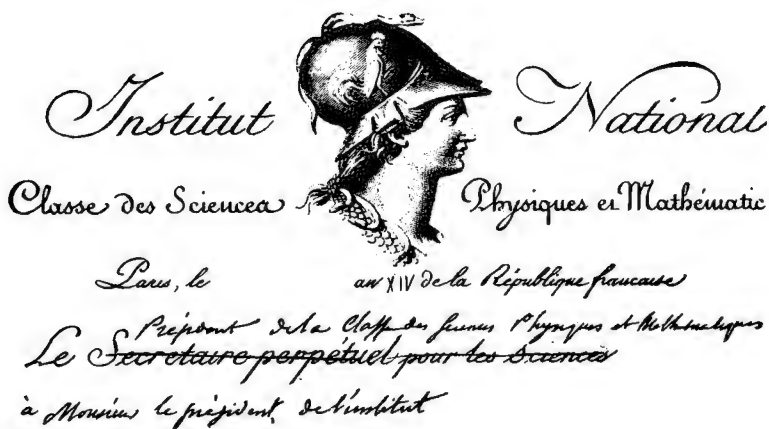 Institut National
Classe des Sciences Physiques et Mathématic
Paris, le an XIV de la République francaise
Président de la Classe des sciences Physiques et Mathematiques
Le Secretaire perpétuel pour les Sciences
à Monsieur le président, de l'institut